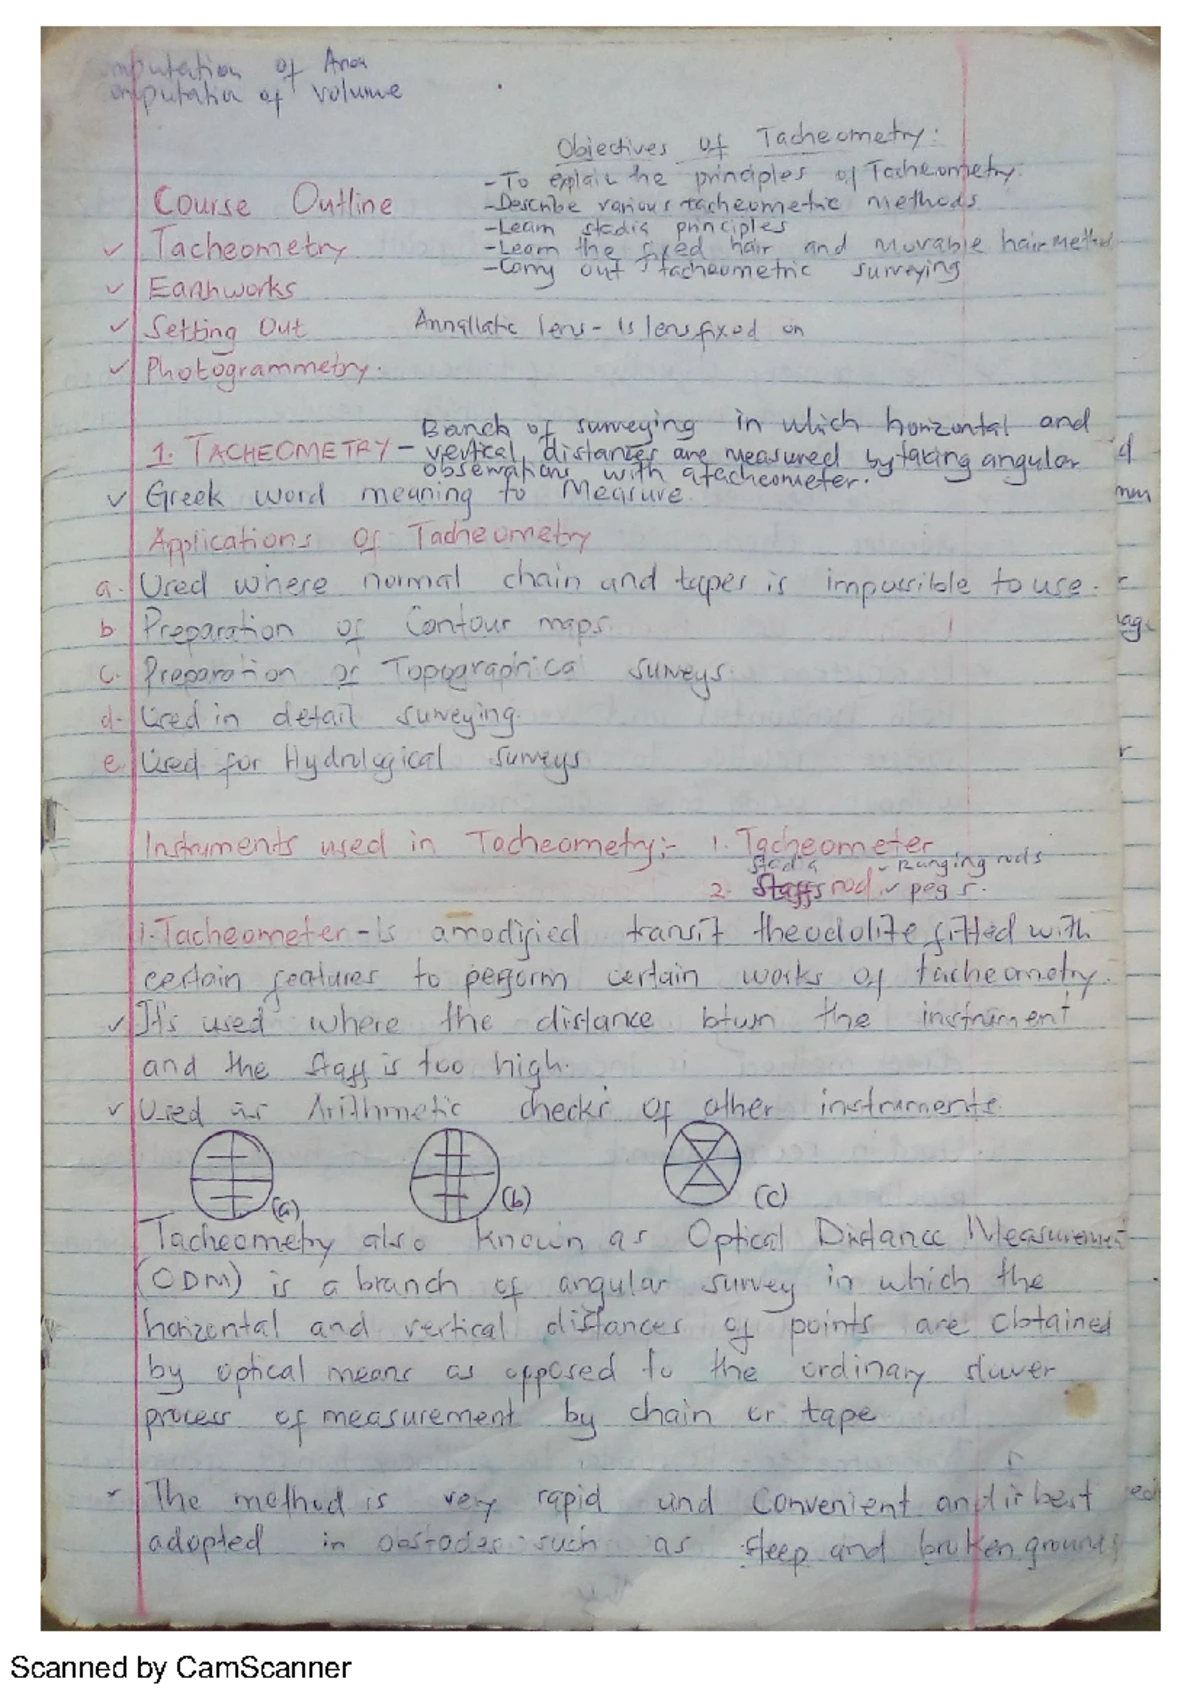 mputation of Area
omputation of volume
Objectives of Tacheometry:
- To explain the principles of Tacheometry.
- Describe various tacheometric methods
- Learn stadia principles
- Learn the fixed hair and Movable hair Method
- Carry out tacheometric surveying
Course Outline
✓ Tacheometry
✓ Earthworks
✓ Setting Out
Annallatic lens - Is lens fixed on
✓ Photogrammetry.
1. TACHEOMETRY - Branch of surveying in which horizontal and
vertical distances are measured by taking angular
observations with a tacheometer.
✓ Greek word meaning to Measure.
Applications Of Tacheometry
a. Used where normal chain and tapes is impossible to use.
b Preparation of Contour maps.
c. Preparation of Topographical surveys.
d. Used in detail surveying.
e. Used for Hydrological surveys
Instruments used in Tacheometry:- 1. Tacheometer
stadia - Ranging rods
2. Staffs rod ✓ pegs.
1. Tacheometer - is a modified transit theodolite fitted with
certain features to perform certain works of tacheometry.
✓ It's used where the distance btwn the instrument
and the staff is too high.
✓ Used as Arithmetic checks of other instruments.
(a) (b) (c)
Tacheometry also known as Optical Distance Measuremen
(ODM) is a branch of angular survey in which the
horizontal and vertical distances of points are obtained
by optical means as opposed to the ordinary sluwer
process of measurement by chain or tape
The method is very rapid and convenient and is best
adopted in obstacles such as steep and broken grounds
Scanned by CamScanner